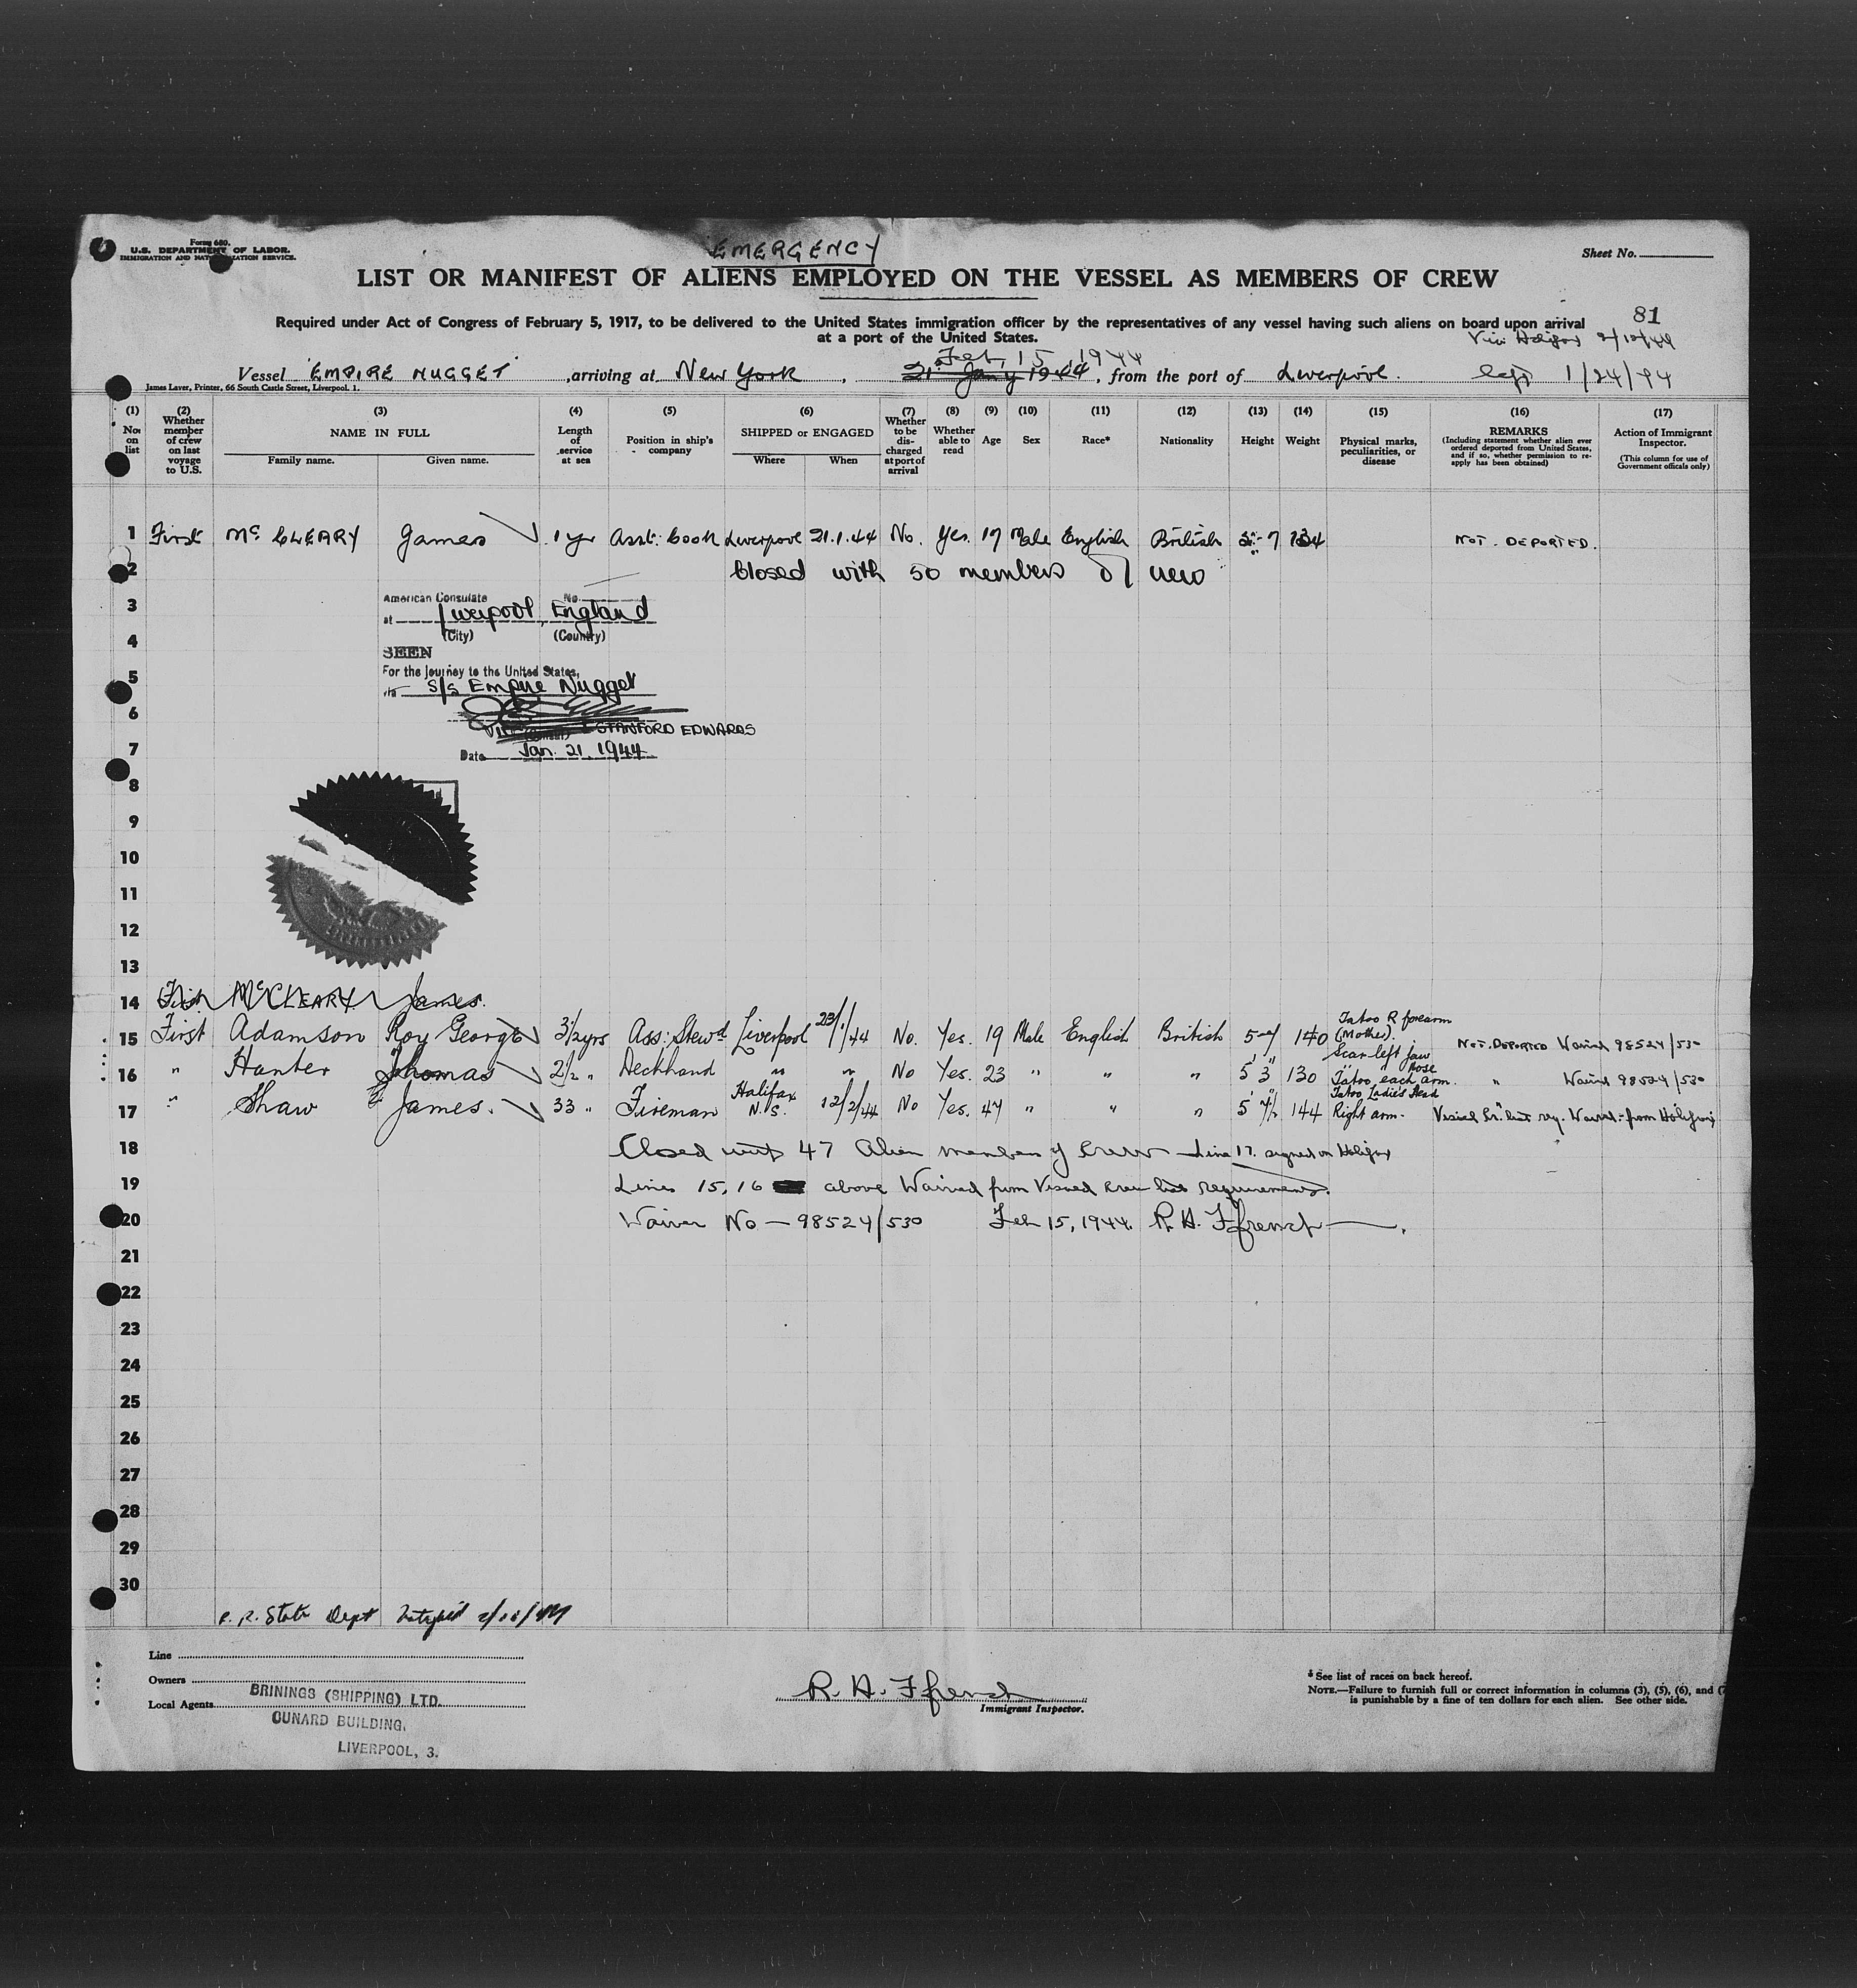 Form 680.
U.S. DEPARTMENT OF LABOR.
IMMIGRATION AND NATURALIZATION SERVICE.
EMERGENCY
Sheet No.
LIST OR MANIFEST OF ALIENS EMPLOYED ON THE VESSEL AS MEMBERS OF CREW
81
Required under Act of Congress of February 5, 1917, to be delivered to the United States immigration officer by the representatives of any vessel having such aliens on board upon arrival
at a port of the United States.
Via Halifax 2/12/44
Feb. 15, 1944
Vessel EMPIRE NUGGET, arriving at New York, 21st Jany 1944, from the port of Liverpool. left 1/24/44
James Laver, Printer, 66 South Castle Street, Liverpool. 1.
(1) (2) (3) (4) (5) (6) (7) (8) (9) (10) (11) (12) (13) (14) (15) (16) (17)
No. on list
Whether member of crew on last voyage to U.S.
NAME IN FULL
Family name. Given name.
Length of service at sea
Position in ship's company
SHIPPED or ENGAGED
Where When
Whether to be discharged at port of arrival
Whether able to read
Age
Sex
Race*
Nationality
Height
Weight
Physical marks, peculiarities, or disease
REMARKS
(Including statement whether alien ever ordered deported from United States, and if so, whether permission to re-apply has been obtained)
Action of Immigrant Inspector.
(This column for use of Government officals only)
1 First McCLEARY James 1 yr Asst: Cook Liverpool 21.1.44 No. Yes. 17 Male English British 5-7 134 NOT. DEPORTED.
2 Closed with 50 members of crew
American Consulate No.
3 at Liverpool, England
(City) (Country)
4
SEEN
For the journey to the United States,
5 via S/S Empire Nugget
6
STANFORD EDWARDS
7 Date Jan. 21, 1944
8
9
10
11
12
13
14 First McCLEARY James.
15 First Adamson Roy George 3½ yrs Ass: Stewd Liverpool 23/1/44 No. Yes. 19 Male English British 140 Tatoo R forearm (Mother). NOT. DEPORTED Waived 98524/530
16 " Hunter Thomas 2½ " Deckhand " " No Yes. 23 " " " 5' 3" 130 Scar left jaw Tatoo Rose each arm. " Waived 98524/530
17 " Shaw James. 33 " Fireman Halifax N.S. 12/2/44 No Yes. 47 " " " 144 Tatoo Ladie's Head Right arm.
18 Closed with 47 Alien members of Crew Line 17. signed on Halifax
19 Lines 15, 16 above Waived from Visaed Crew list requirements.
20 Waiver No — 98524/530 Feb 15, 1944. R. H. Ffrench
21
22
23
24
25
26
27
28
29
30
State Dept
Line
Owners
Local Agents
BRININGS (SHIPPING) LTD.
CUNARD BUILDING,
LIVERPOOL, 3.
R. H. Ffrench
Immigrant Inspector.
* See list of races on back hereof.
NOTE.—Failure to furnish full or correct information in columns (3), (5), (6), and (7
is punishable by a fine of ten dollars for each alien. See other side.